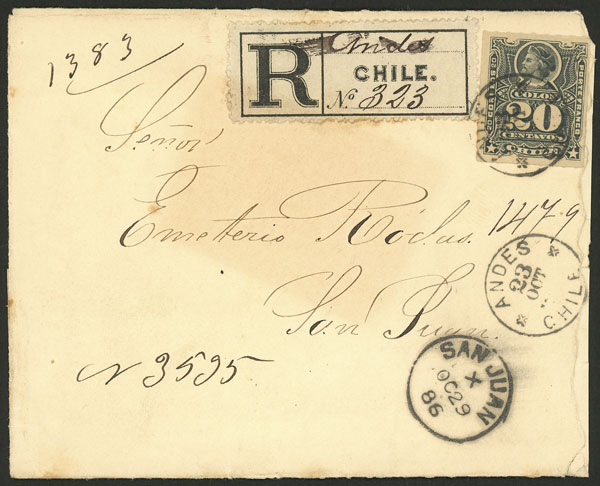 1383
R
Andes
CHILE.
No. 323
COLON
20
CENTAVOS
CHILE
PORTE FRANCO
Señor
Emeterio Ródas
1479
San Juan.
ANDES
23
DE
OCT
CHILE
N 3595
SAN JUAN
X
OC29
86